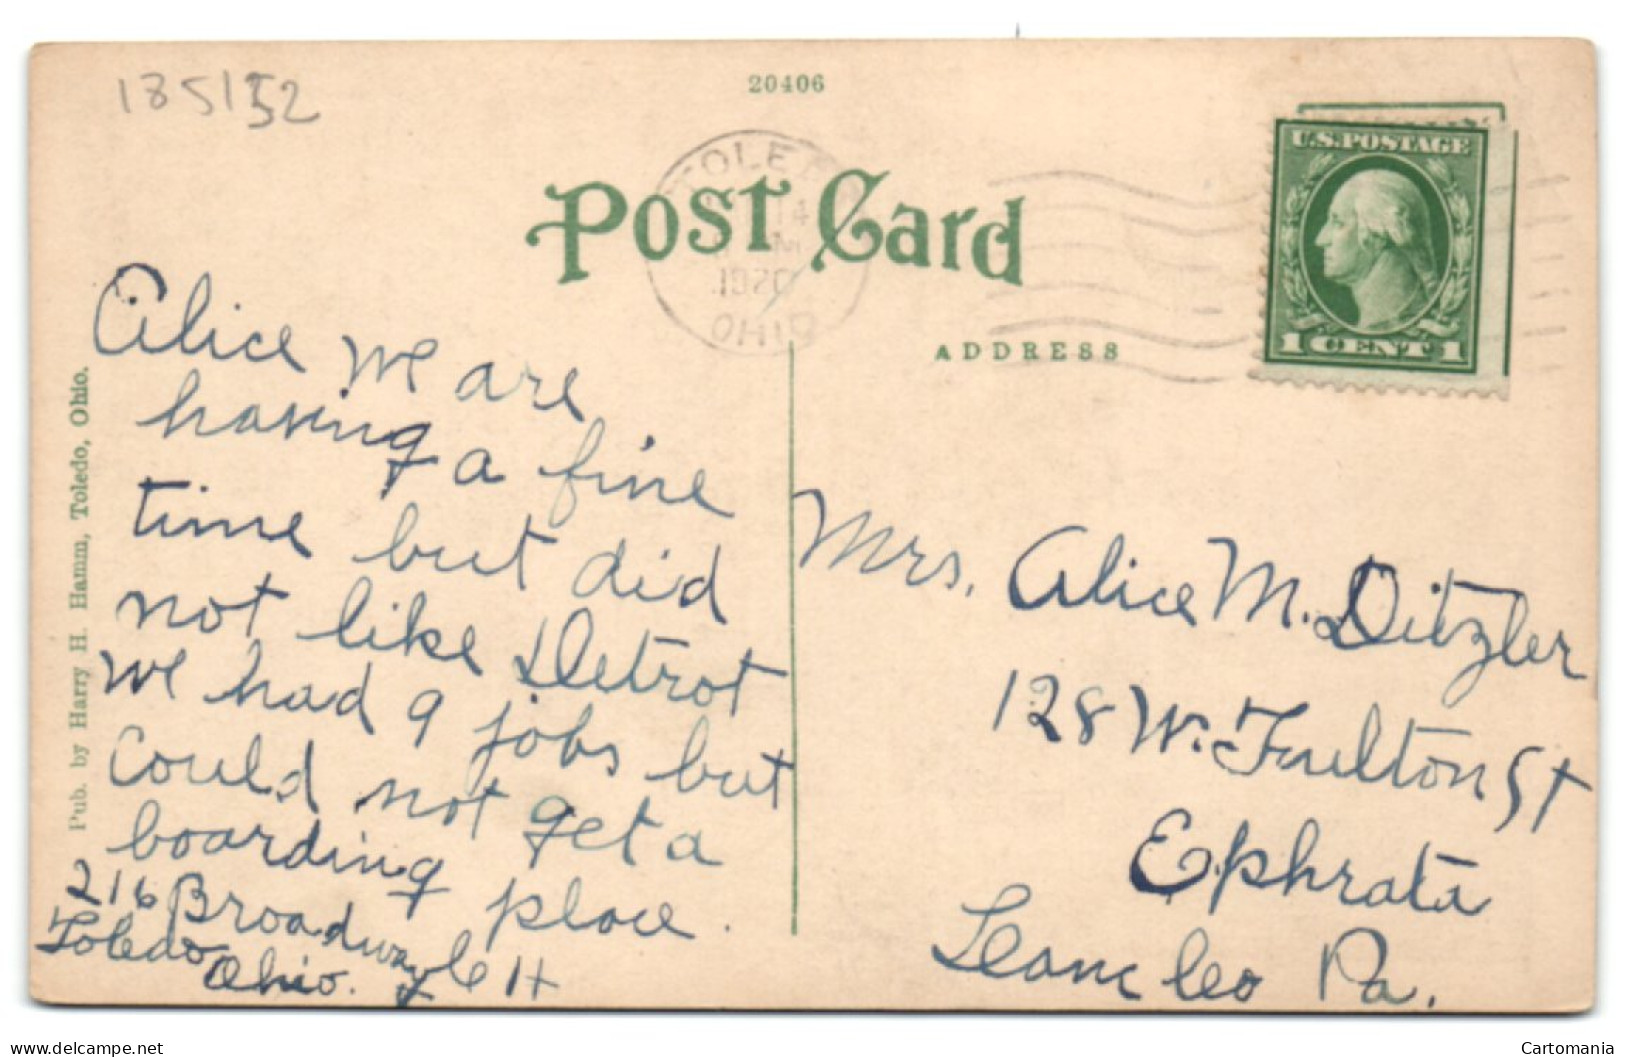 185152
20406
TOLEDO
14
1920
OHIO
POST CARD
U.S.POSTAGE
1 CENT 1
ADDRESS
Alice we are
having a fine
time but did
not like Detrot
we had 9 jobs but
could not get a
boarding place.
216 Broadway
Toledo
Ohio.
Mrs. Alice M. Ditzler
128 W. Fulton St
Ephrata
Lanc Co Pa.
Pub. by Harry H. Hamm, Toledo, Ohio.
www.delcampe.net
Cartomania